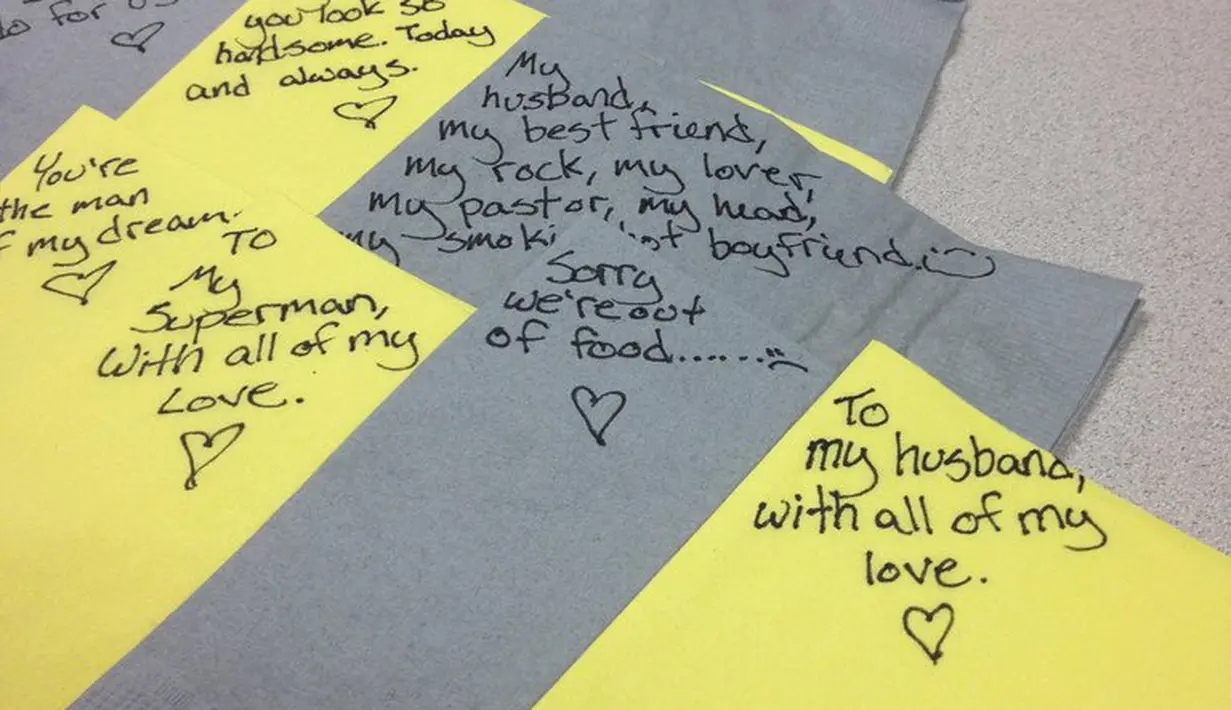 for
you look so
handsome. Today
and always.
My
husband,
my best friend,
my rock, my lover,
my pastor, my head,
my boyfriend.
You're
the man
my dream.
TO
My
Superman,
With all of my
Love.
Sorry
we're out
of food.......
To
my husband,
with all of my
love.